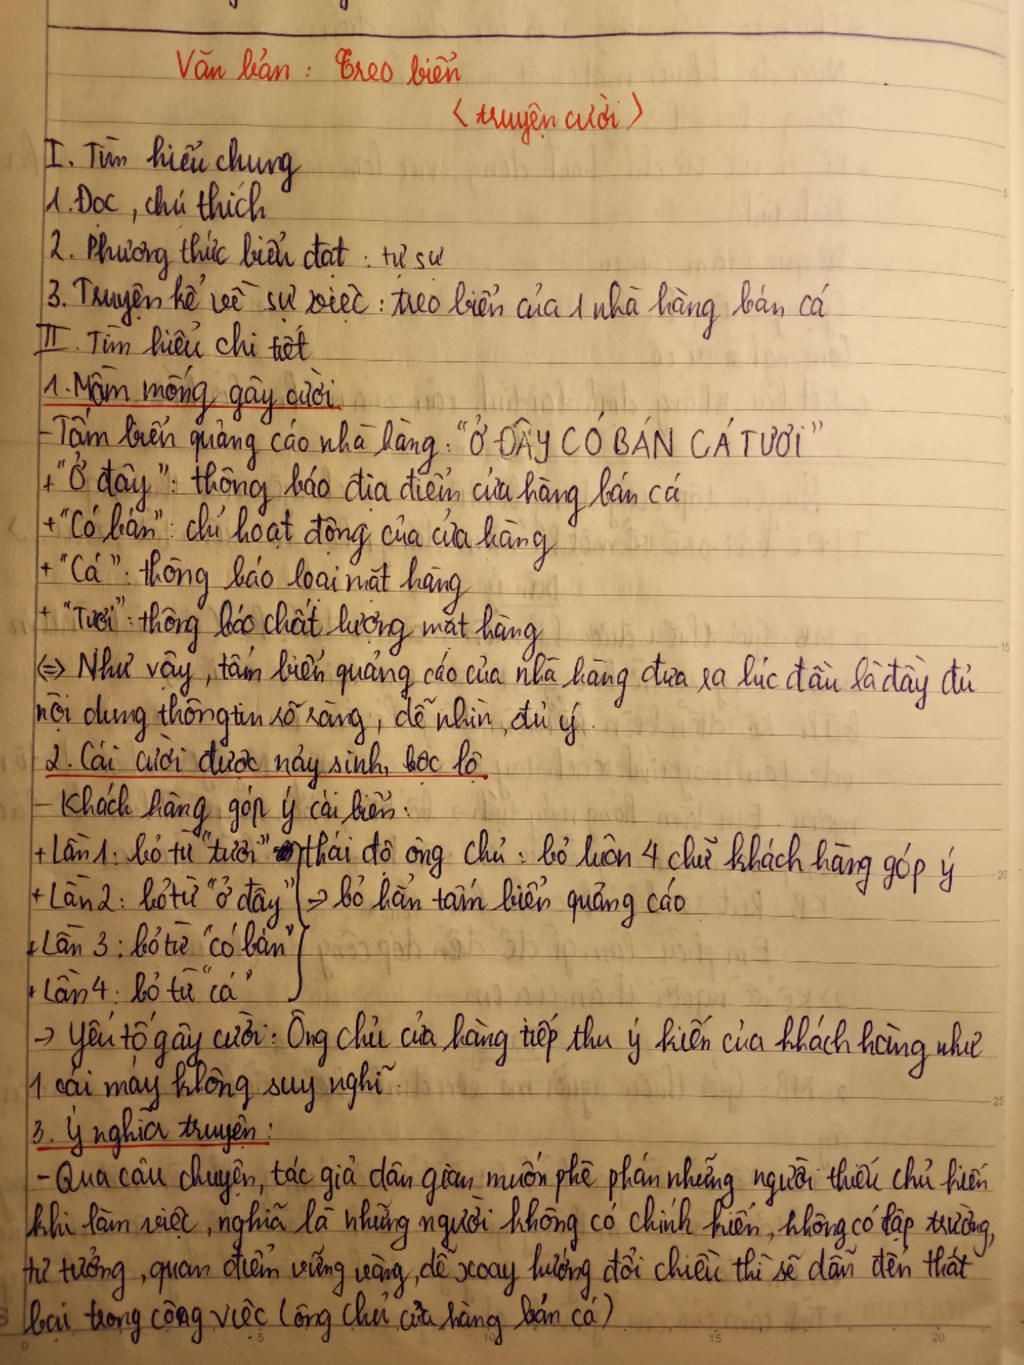 Văn bản: Treo biển
(truyện cười)
I. Tìm hiểu chung
1. Đọc, chú thích
2. Phương thức biểu đạt: tự sự
3. Truyện kể về sự việc: treo biển của 1 nhà hàng bán cá
II. Tìm hiểu chi tiết
1. Mầm mống gây cười
- Tấm biển quảng cáo nhà hàng: "Ở ĐÂY CÓ BÁN CÁ TƯƠI"
+ "Ở đây": thông báo địa điểm cửa hàng bán cá
+ "Có bán": chỉ hoạt động của cửa hàng
+ "Cá": thông báo loại mặt hàng
+ "Tươi": thông báo chất lượng mặt hàng
<=> Như vậy, tấm biển quảng cáo của nhà hàng đưa ra lúc đầu là đầy đủ
nội dung thông tin số sàng, dễ nhìn, đủ ý.
2. Cái cười được nảy sinh, bộc lộ.
- Khách hàng góp ý cái biển:
+ Lần 1: bỏ từ "tươi" thái độ ông chủ: bỏ luôn 4 chữ khách hàng góp ý
+ Lần 2: bỏ từ "ở đây" => bỏ hẳn tấm biển quảng cáo
+ Lần 3: bỏ từ "có bán"
+ Lần 4: bỏ từ "cá"
-> Yếu tố gây cười: Ông chủ cửa hàng tiếp thu ý kiến của khách hàng như
1 cái máy không suy nghĩ.
3. Ý nghĩa truyện:
- Qua câu chuyện, tác giả dân gian muốn phê phán những người thiếu chủ kiến
khi làm việc, nghĩa là những người không có chính kiến, không có lập trường,
tư tưởng, quan điểm vững vàng, dễ xoay hướng đổi chiều thì sẽ dẫn đến thất
bại trong công việc (ông chủ cửa hàng bán cá)